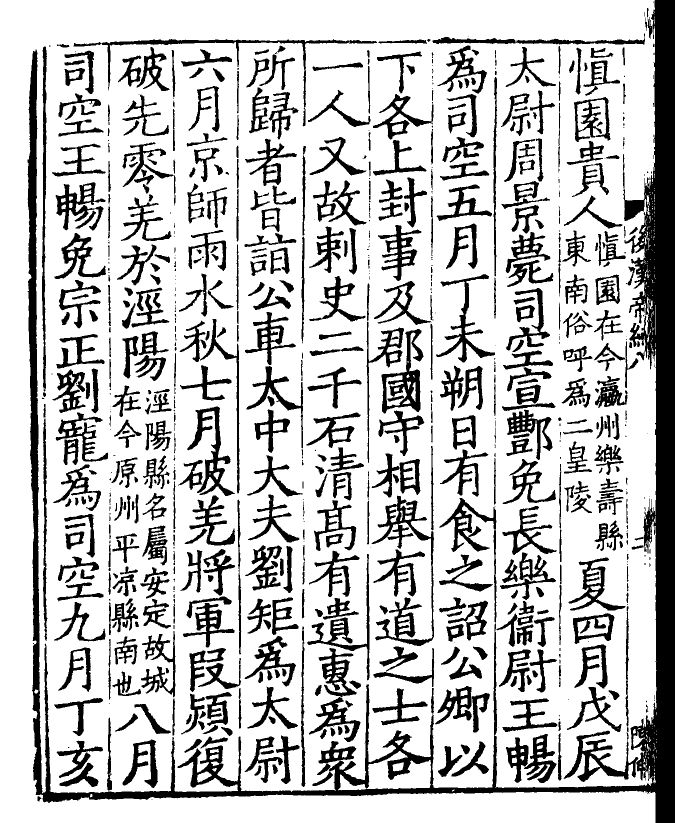 後漢帝紀八
慎園貴人慎園在今瀛州樂壽縣東南俗呼爲二皇陵夏四月戊辰
太尉周景薨司空宣酆免長樂衞尉王暢
爲司空五月丁未朔日有食之詔公卿以
下各上封事及郡國守相舉有道之士各
一人又故刺史二千石清髙有遺惠爲衆
所歸者皆詣公車太中大夫劉矩爲太尉
六月京師雨水秋七月破羌將軍段熲復
破先零羌於涇陽涇陽縣名屬安定故城在今原州平凉縣南也八月
司空王暢免宗正劉寵爲司空九月丁亥